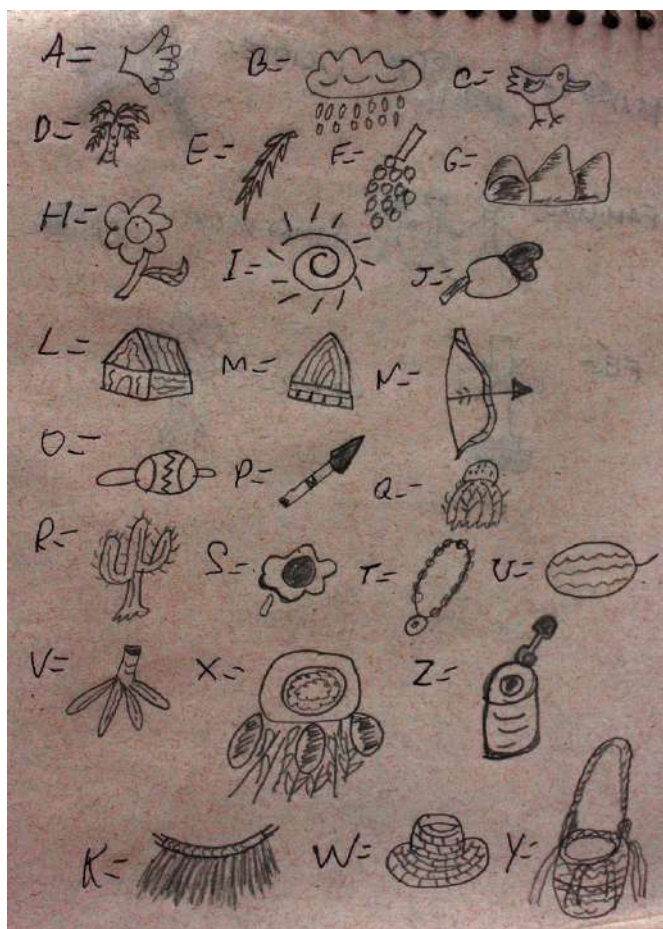 A= B= C=
D= E= F= G=
H= I= J=
L= M= N=
O= P= Q=
R= S= T= U=
V= X= Z=
K= W= Y=